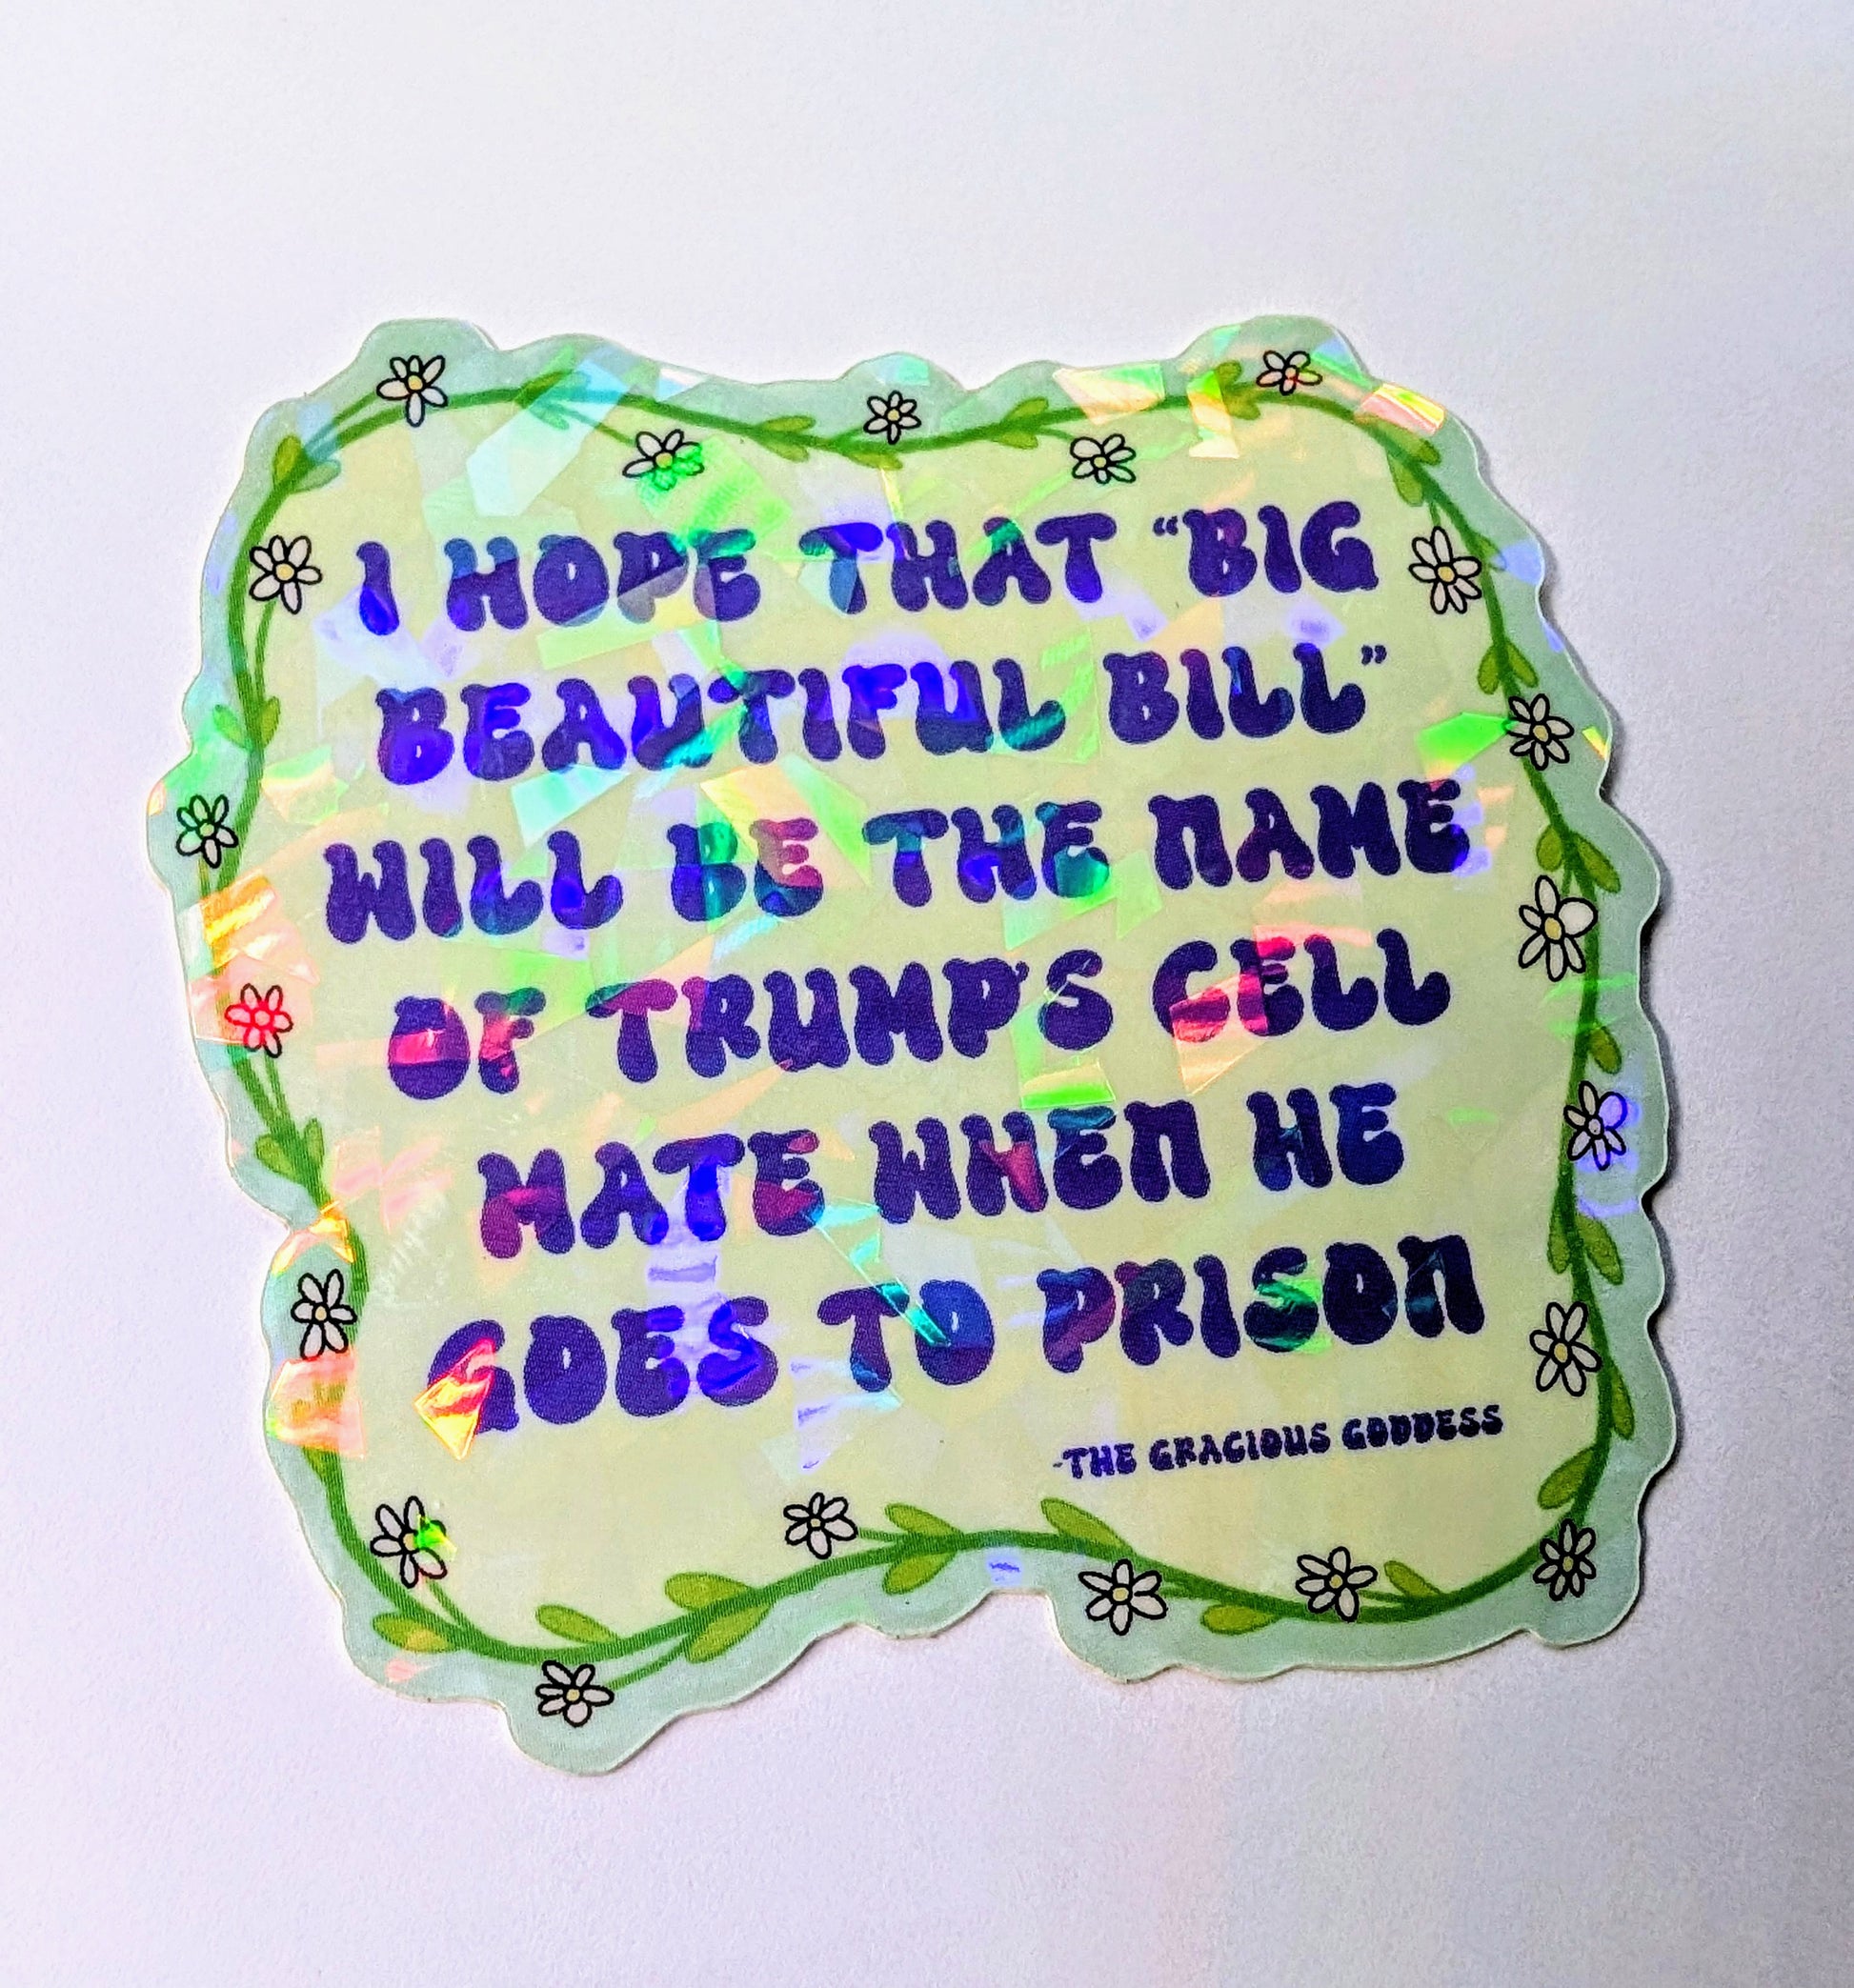 I HOPE THAT “BIG
BEAUTIFUL BILL”
WILL BE THE NAME
OF TRUMP'S CELL
MATE WHEN HE
GOES TO PRISON
-THE GRACIOUS GODDESS